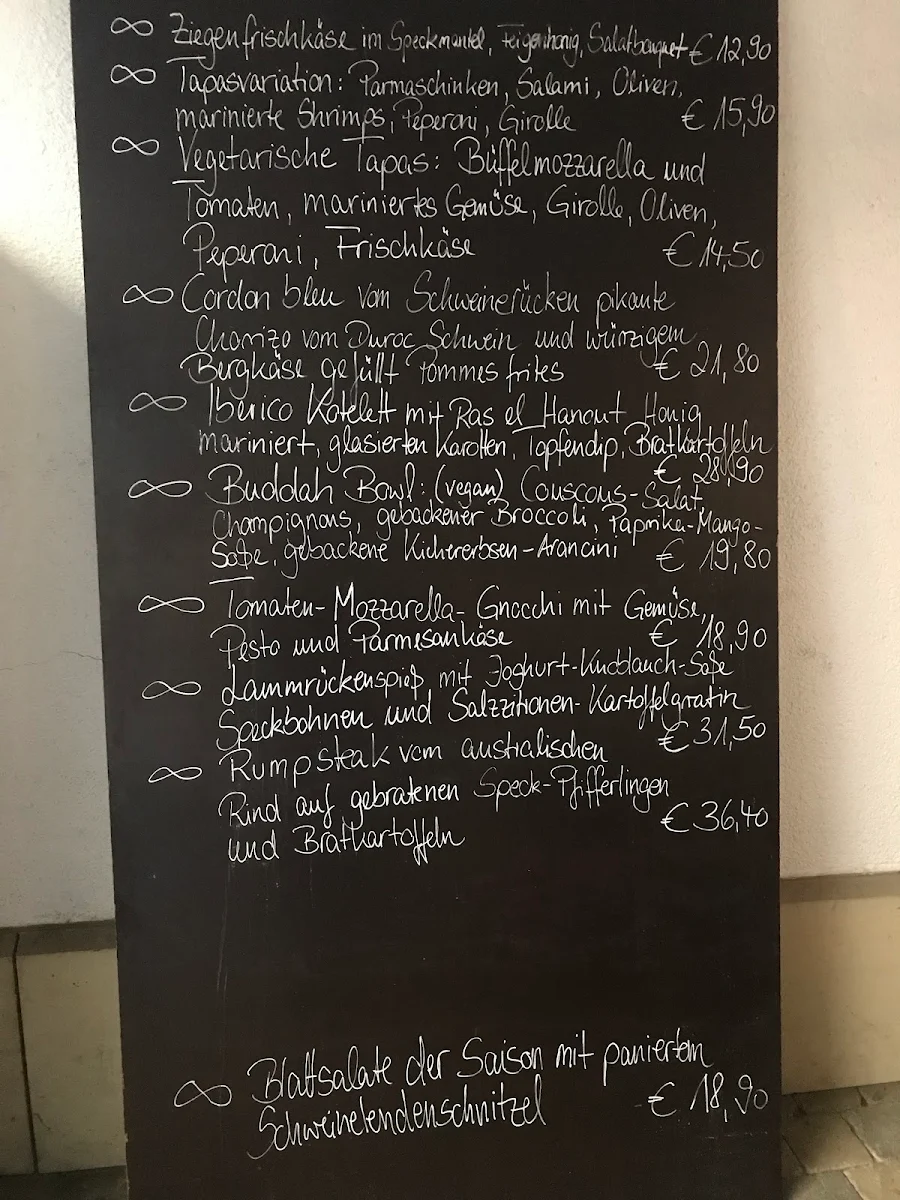 ∞ Ziegenfrischkäse im Speckmantel, Feigenhonig, Salatbouquet € 12,90
∞ Tapasvariation: Parmaschinken, Salami, Oliven,
marinierte Shrimps, Peperoni, Girolle € 15,90
∞ Vegetarische Tapas: Büffelmozzarella und
Tomaten, mariniertes Gemüse, Girolle, Oliven,
Peperoni, Frischkäse € 14,50
∞ Cordon bleu vom Schweinerücken pikante
Chorrizo vom Duroc Schwein und würzigem
Bergkäse gefüllt Pommes frites € 21,80
∞ Iberico Kotelett mit Ras el Hanout Honig
mariniert, glasierten Karotten, Topfendip, Bratkartoffeln
€ 28,90
∞ Buddah Bowl: (vegan) Couscous-Salat,
Champignons, gebackener Broccoli, Paprika-Mango-
Soße, gebackene Kichererbsen-Arancini € 19,80
∞ Tomaten-Mozzarella-Gnocchi mit Gemüse,
Pesto und Parmesankäse € 18,90
∞ Lammrückenspieß mit Joghurt-Knoblauch-Soße
Speckbohnen und Salzzitronen-Kartoffelgratin
€ 31,50
∞ Rumpsteak vom australischen
Rind auf gebratenen Speck-Pfifferlingen
und Bratkartoffeln € 36,40
∞ Blattsalate der Saison mit paniertem
Schweinelendenschnitzel € 18,90